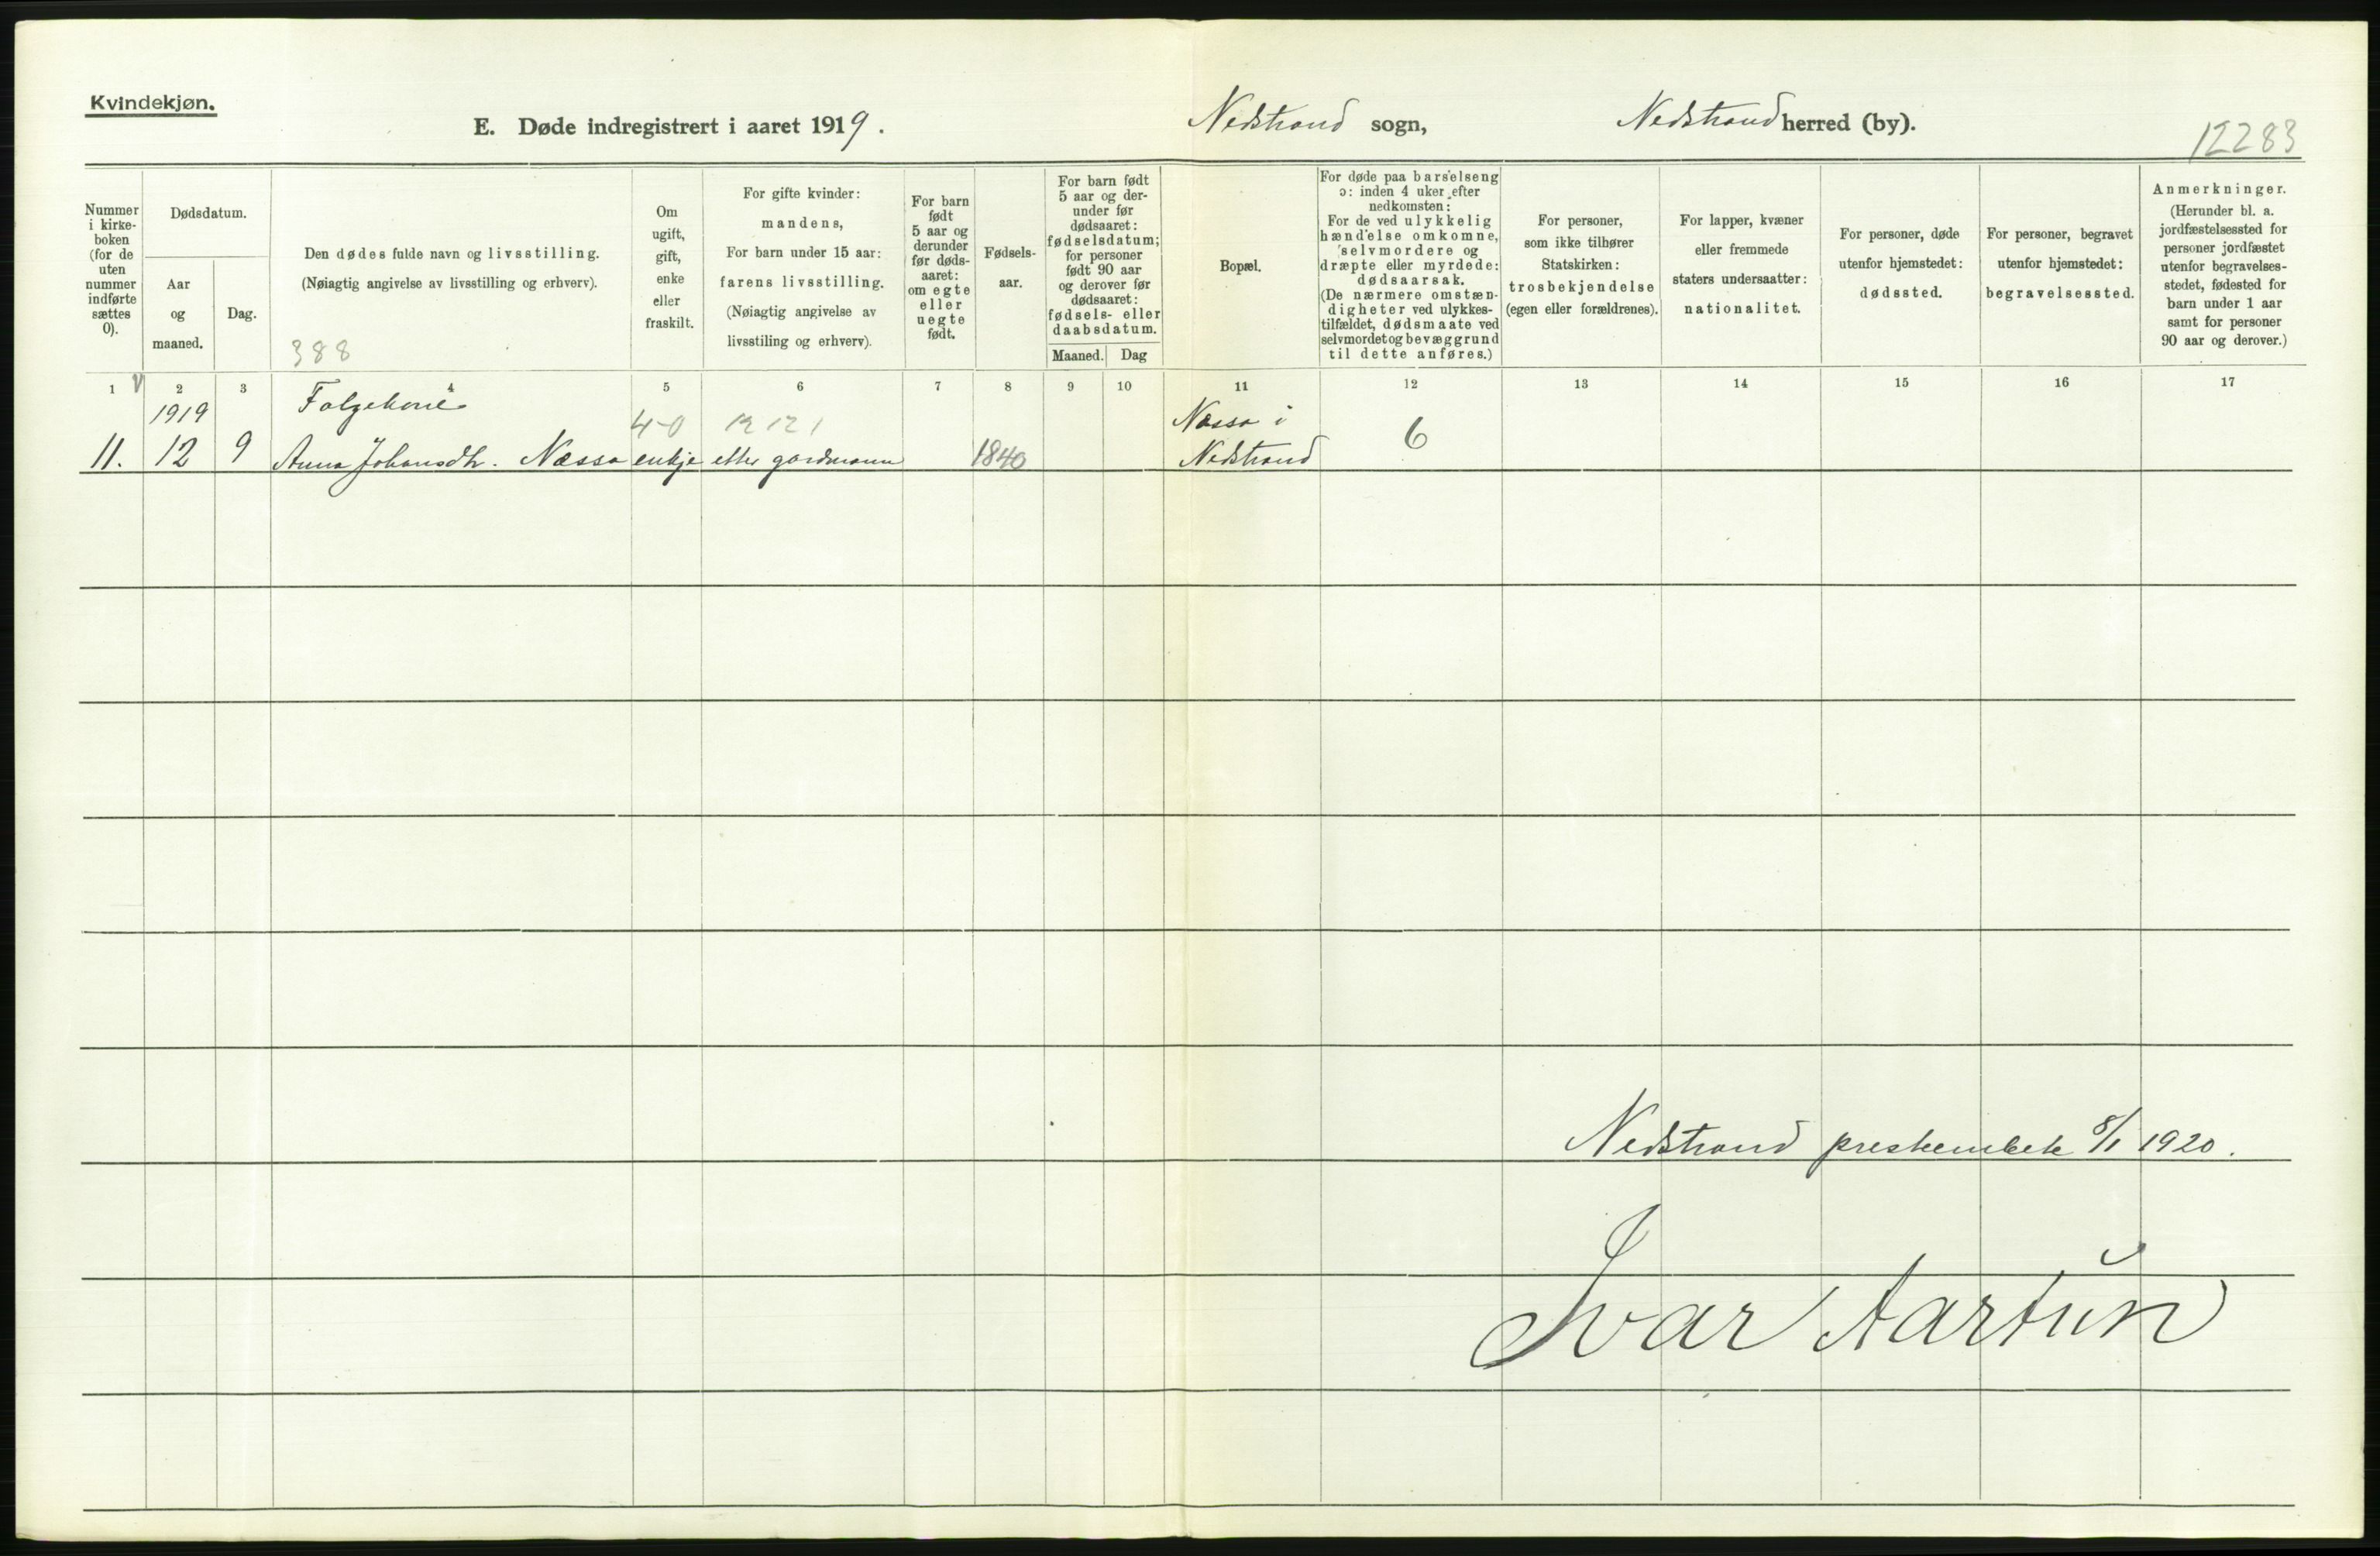 Kvindekjøn.
E. Døde indregistrert i aaret 1919.
Nedstrand sogn,
Nedstrand herred (by).
12283
Nummer
i kirke-
boken
(for de
uten
nummer
indførte
sættes
0).
Dødsdatum.
Aar
og
maaned.
Dag.
Den dødes fulde navn og livsstilling.
(Nøiagtig angivelse av livsstilling og erhverv).
388
Om
ugift,
gift,
enke
eller
fraskilt.
For gifte kvinder:
mandens,
For barn under 15 aar:
farens livsstilling.
(Nøiagtig angivelse av
livsstiling og erhverv).
For barn
født
5 aar og
derunder
før døds-
aaret:
om egte
eller
uegte
født.
Fødsels-
aar.
For barn født
5 aar og der-
under før
dødsaaret:
fødselsdatum;
for personer
født 90 aar
og derover før
dødsaaret:
fødsels- eller
daabsdatum.
Maaned. Dag
Bopæl.
For døde paa barselseng
ɔ: inden 4 uker efter
nedkomsten:
For de ved ulykkelig
hændelse omkomne,
selvmordere og
dræpte eller myrdede:
dødsaarsak.
(De nærmere omstæn-
digheter ved ulykkes-
tilfældet, dødsmaate ved
selvmordet og bevæggrund
til dette anføres.)
For personer,
som ikke tilhører
Statskirken:
trosbekjendelse
(egen eller forældrenes).
For lapper, kvæner
eller fremmede
staters undersaatter:
nationalitet.
For personer, døde
utenfor hjemstedet:
dødssted.
For personer, begravet
utenfor hjemstedet:
begravelsessted.
Anmerkninger.
(Herunder bl. a.
jordfæstelsessted for
personer jordfæstet
utenfor begravelses-
stedet, fødested for
barn under 1 aar
samt for personer
90 aar og derover.)
1 2 3 4 5 6 7 8 9 10 11 12 13 14 15 16 17
1919 Folgekone 4-0 Næssa i
11. 12 9 Anna Johansdtr. Næssa enkje etter gardmann 1840 Nedstrand 6
Nedstrand prestembete 8/1 1920.
Ivar Aartun